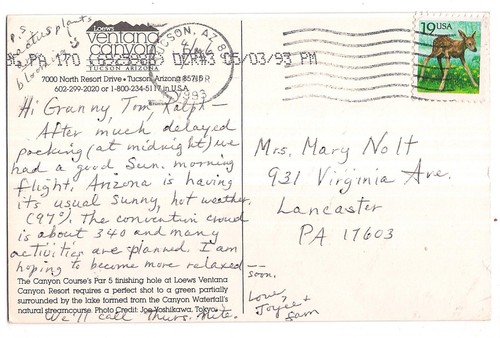 P.S.
Cactus plants
blooming
Loews
ventana
canyon
RESORT
TUCSON ARIZONA
7000 North Resort Drive • Tucson, Arizona 85715
602-299-2020 or 1-800-234-5117 in U.S.A.
TUCSON, AZ
1993
PA 170
DCR#3 05/03/93 PM
19 USA
Hi Granny, Tom, Ralph –
After much delayed
packing (at midnight) we
had a good Sun. morning
flight. Arizona is having
its usual sunny, hot weather.
(97°). The convention crowd
is about 340 and many
activities are planned. I am
hoping to become more relaxed –
soon.
Love,
Joyce +
Sam
The Canyon Course's Par 5 finishing hole at Loews Ventana
Canyon Resort requires a perfect shot to a green partially
surrounded by the lake formed from the Canyon Waterfall's
natural streamcourse. Photo Credit: Joe Yoshikawa, Tokyo
We'll call Thurs. nite.
Mrs. Mary Nolt
931 Virginia Ave.
Lancaster
PA 17603